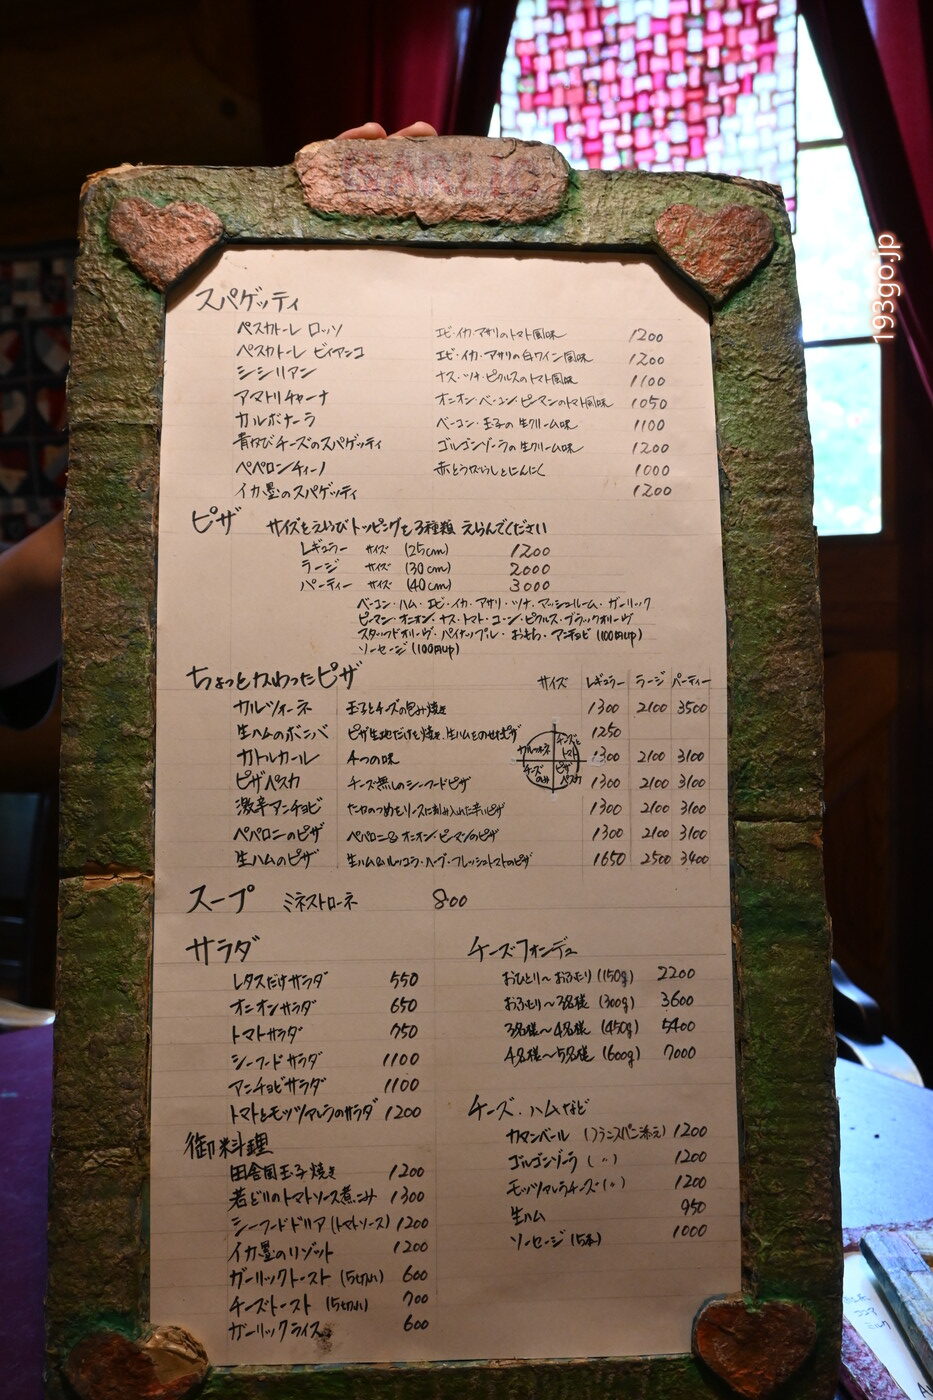 GARLIC
193go.jp
スパゲッティ
ペスカトーレ ロッソ エビ・イカ・アサリのトマト風味 1200
ペスカトーレ ビィアンコ エビ・イカ・アサリの白ワイン風味 1200
シシリアン ナス・ツナ・ピクルスのトマト風味 1100
アマトリチャーナ オニオン・ベーコン・ピーマンのトマト風味 1050
カルボナーラ ベーコン・玉子の生クリーム味 1100
青かびチーズのスパゲッティ ゴルゴンゾーラの生クリーム味 1200
ペペロンチィーノ 赤とうがらしとにんにく 1000
イカ墨のスパゲッティ 1200
ピザ サイズをえらびトッピングを3種類 えらんでください
レギュラー サイズ (25cm) 1200
ラージ サイズ (30cm) 2000
パーティー サイズ (40cm) 3000
ベーコン・ハム・エビ・イカ・アサリ・ツナ・マッシュルーム・ガーリック
ピーマン・オニオン・ナス・トマト・コーン・ピクルス・ブラックオリーヴ
スタッフドオリーヴ・パイナップル・おもち・アンチョビ (100円up)
ソーセージ (100円up)
ちょっとかわったピザ サイズ レギュラー ラージ パーティー
カルツォーネ 玉子とチーズの包み焼き 1300 2100 3500
生ハムのボンバ ピザ生地だけを焼き、生ハムをのせたピザ 1250
カトルカール 4つの味 カルツォーネ チーズとトマト チーズのみ ピザペスカ 1300 2100 3100
ピザペスカ チーズ無しのシーフードピザ 1300 2100 3100
激辛アンチョビ たかのつめをソースに刻み入れた辛いピザ 1300 2100 3100
ペペロニのピザ ペパロニ&オニオン・ピーマンのピザ 1300 2100 3100
生ハムのピザ 生ハム&ルッコラ・ハーブ・フレッシュトマトのピザ 1650 2500 3400
スープ ミネストローネ 800
サラダ
レタスだけサラダ 550
オニオンサラダ 650
トマトサラダ 750
シーフードサラダ 1100
アンチョビサラダ 1100
トマトとモッツァレラのサラダ 1200
御料理
田舎風玉子焼き 1200
若どりのトマトソース煮こみ 1300
シーフードドリア (トマトソース) 1200
イカ墨のリゾット 1200
ガーリックトースト (5切れ) 600
チーズトースト (5切れ) 700
ガーリックライス 600
チーズフォンデュ
おひとり〜おふたり (150g) 2200
おふたり〜3名様 (300g) 3600
3名様〜4名様 (450g) 5400
4名様〜5名様 (600g) 7000
チーズ、ハムなど
カマンベール (フランスパン添え) 1200
ゴルゴンゾーラ (〃) 1200
モッツァレラチーズ (〃) 1200
生ハム 950
ソーセージ (5本) 1000
ココア
ミルク